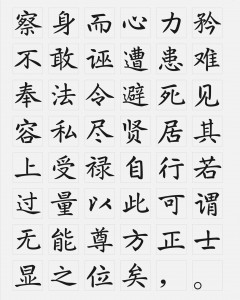 察身而
不敢诬
奉法令
容私尽
心力矜
遭患难
避死见
贤居其
上受禄
过量以
无能尊
显之位
自行若
此可谓
方正士
矣，。